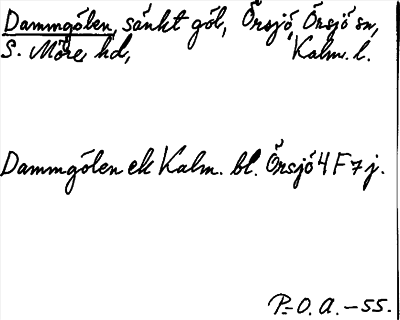 Dammgölen, sänkt göl, Örsjö, Örsjö sn,
S. Möre hd, Kalm. l.
Dammgölen ek Kalm. bl. Örsjö 4 F 7 j.
P.-O. A. -55.